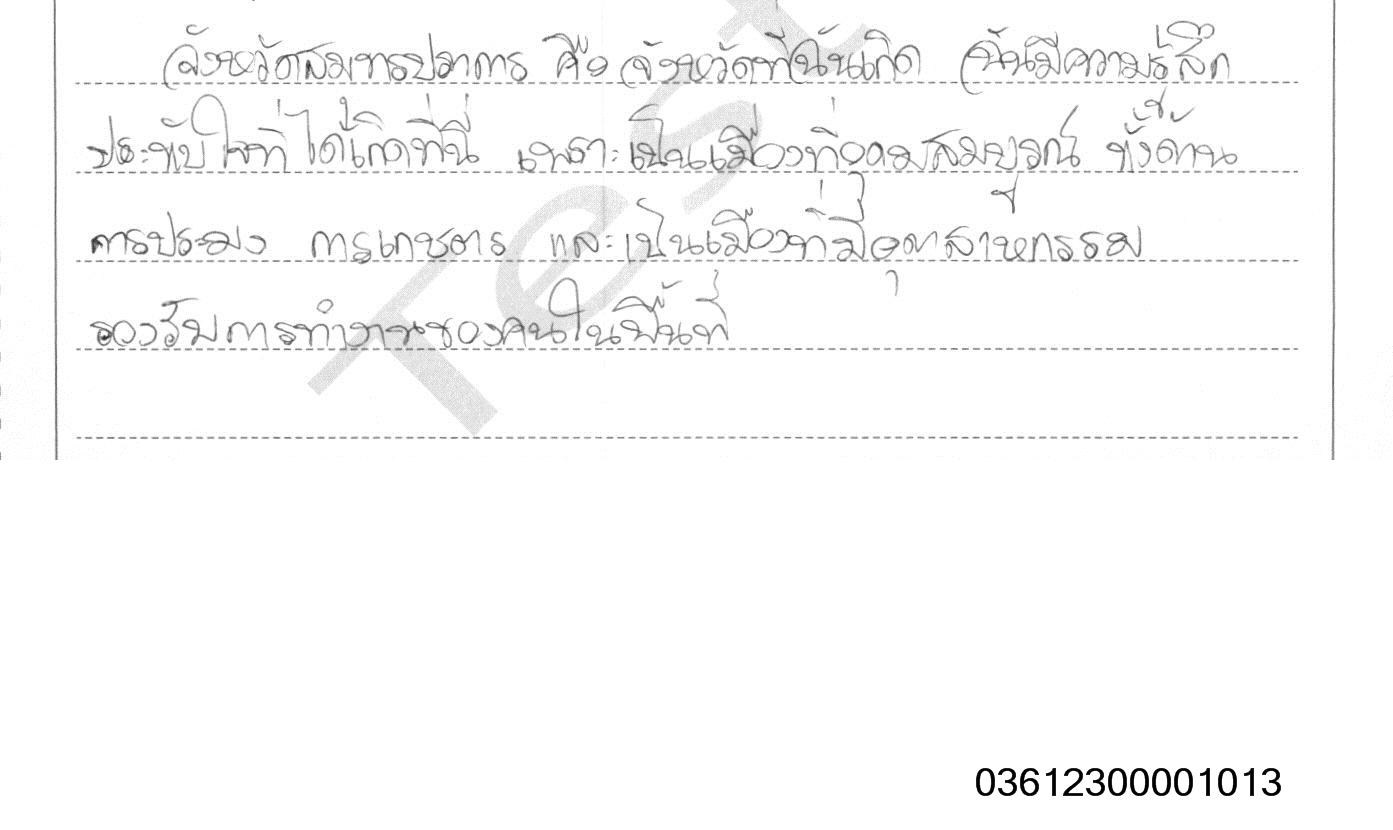 จังหวัดสมุทรปราการ คือ จังหวัดที่ฉันเกิด ฉันมีความรู้สึก
ประทับใจที่ได้เกิดที่นี่ เพราะเป็นเมืองที่อุดมสมบูรณ์ ทั้งด้าน
การประมง การเกษตร และเป็นเมืองที่มีอุตสาหกรรม
รองรับการทำงานของคนในพื้นที่
Test
03612300001013